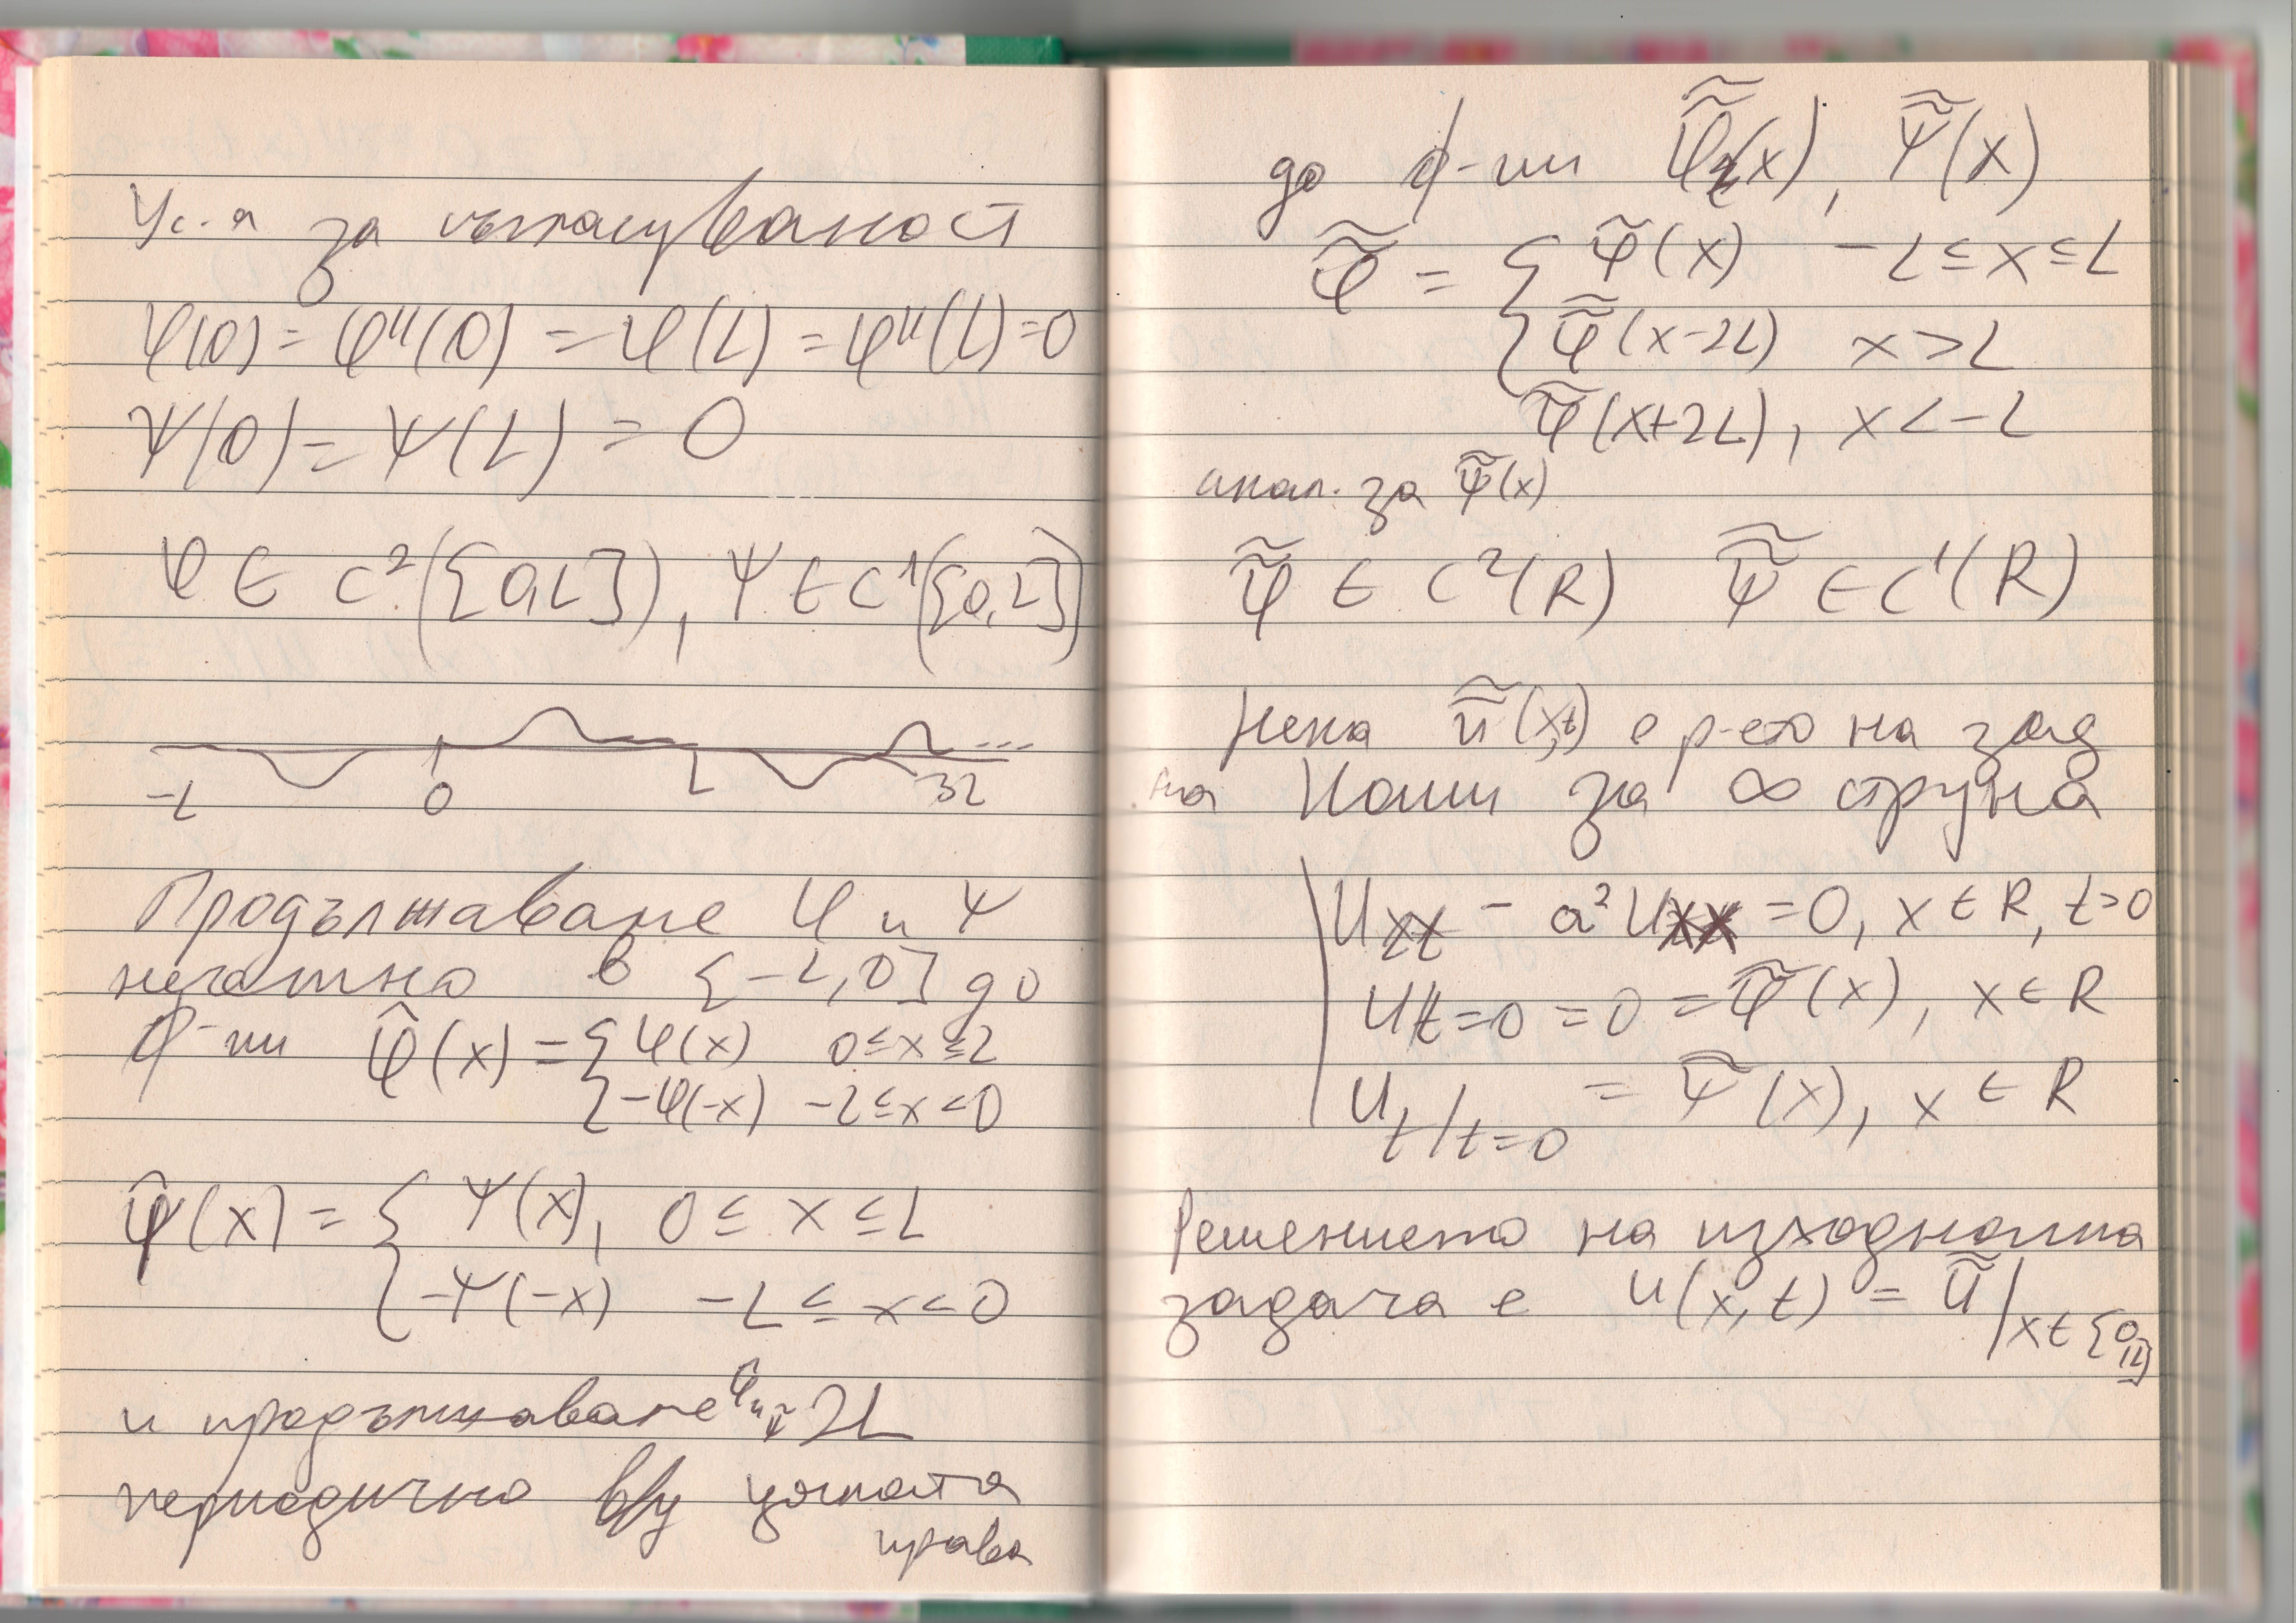 Ус-я за съгласуваност
φ(0) = φ''(0) = φ(L) = φ''(L) = 0
ψ(0) = ψ(L) = 0
φ ∈ C²([0,L]), ψ ∈ C¹([0,L])
-L 0 L 3L ...
Продължаваме φ и ψ
нечетно в [-L,0] до
ф-ии φ̃(x) = { φ(x) 0 ≤ x ≤ L
{ -φ(-x) -L ≤ x < 0
ψ̃(x) = { ψ(x), 0 ≤ x ≤ L
{ -ψ(-x) -L ≤ x < 0
и продължаваме φ̃ и ψ̃ 2L
периодично в/у цялата
права
до ф-ии φ̃̃(x), ψ̃̃(x)
φ̃̃ = { φ̃(x) -L ≤ x ≤ L
{ φ̃̃(x-2L) x > L
φ̃̃(x+2L), x < -L
анал. за ψ̃̃(x)
φ̃̃ ∈ C²(R) ψ̃̃ ∈ C¹(R)
Нека ũ̃(x,t) е р-ео на зад
на Коши за ∞ струна
| U_tt - a² U_xx = 0, x ∈ R, t > 0
U|t=0 = 0 = φ̃̃(x), x ∈ R
U_t|t=0 = ψ̃̃(x), x ∈ R
Решението на изходната
задача е u(x,t) = ũ̃|x∈[0,L]